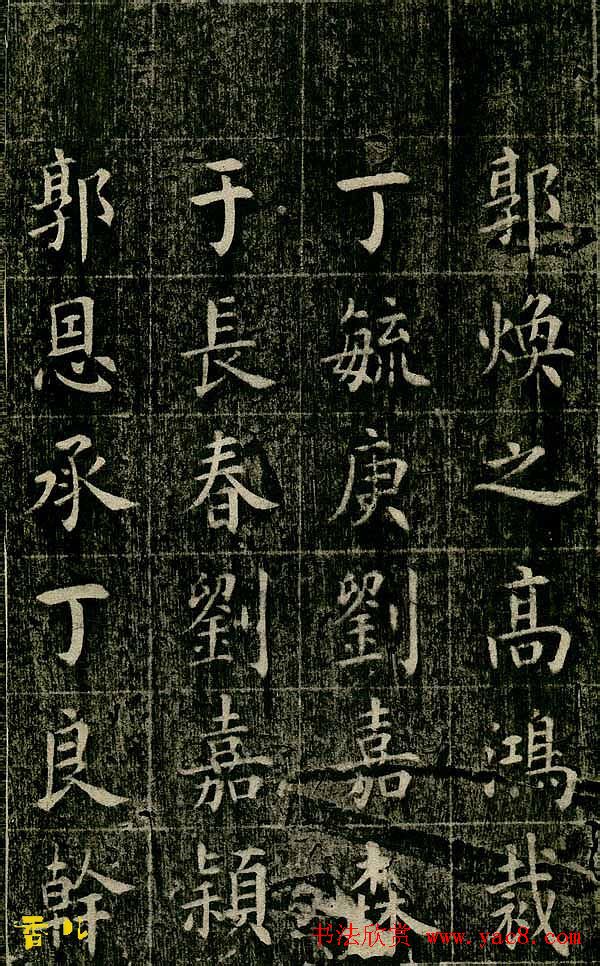 郭煥之高鴻裁
丁毓庚劉嘉森
于長春劉嘉穎
郭恩承丁良幹
书法欣赏 www.yac8.com